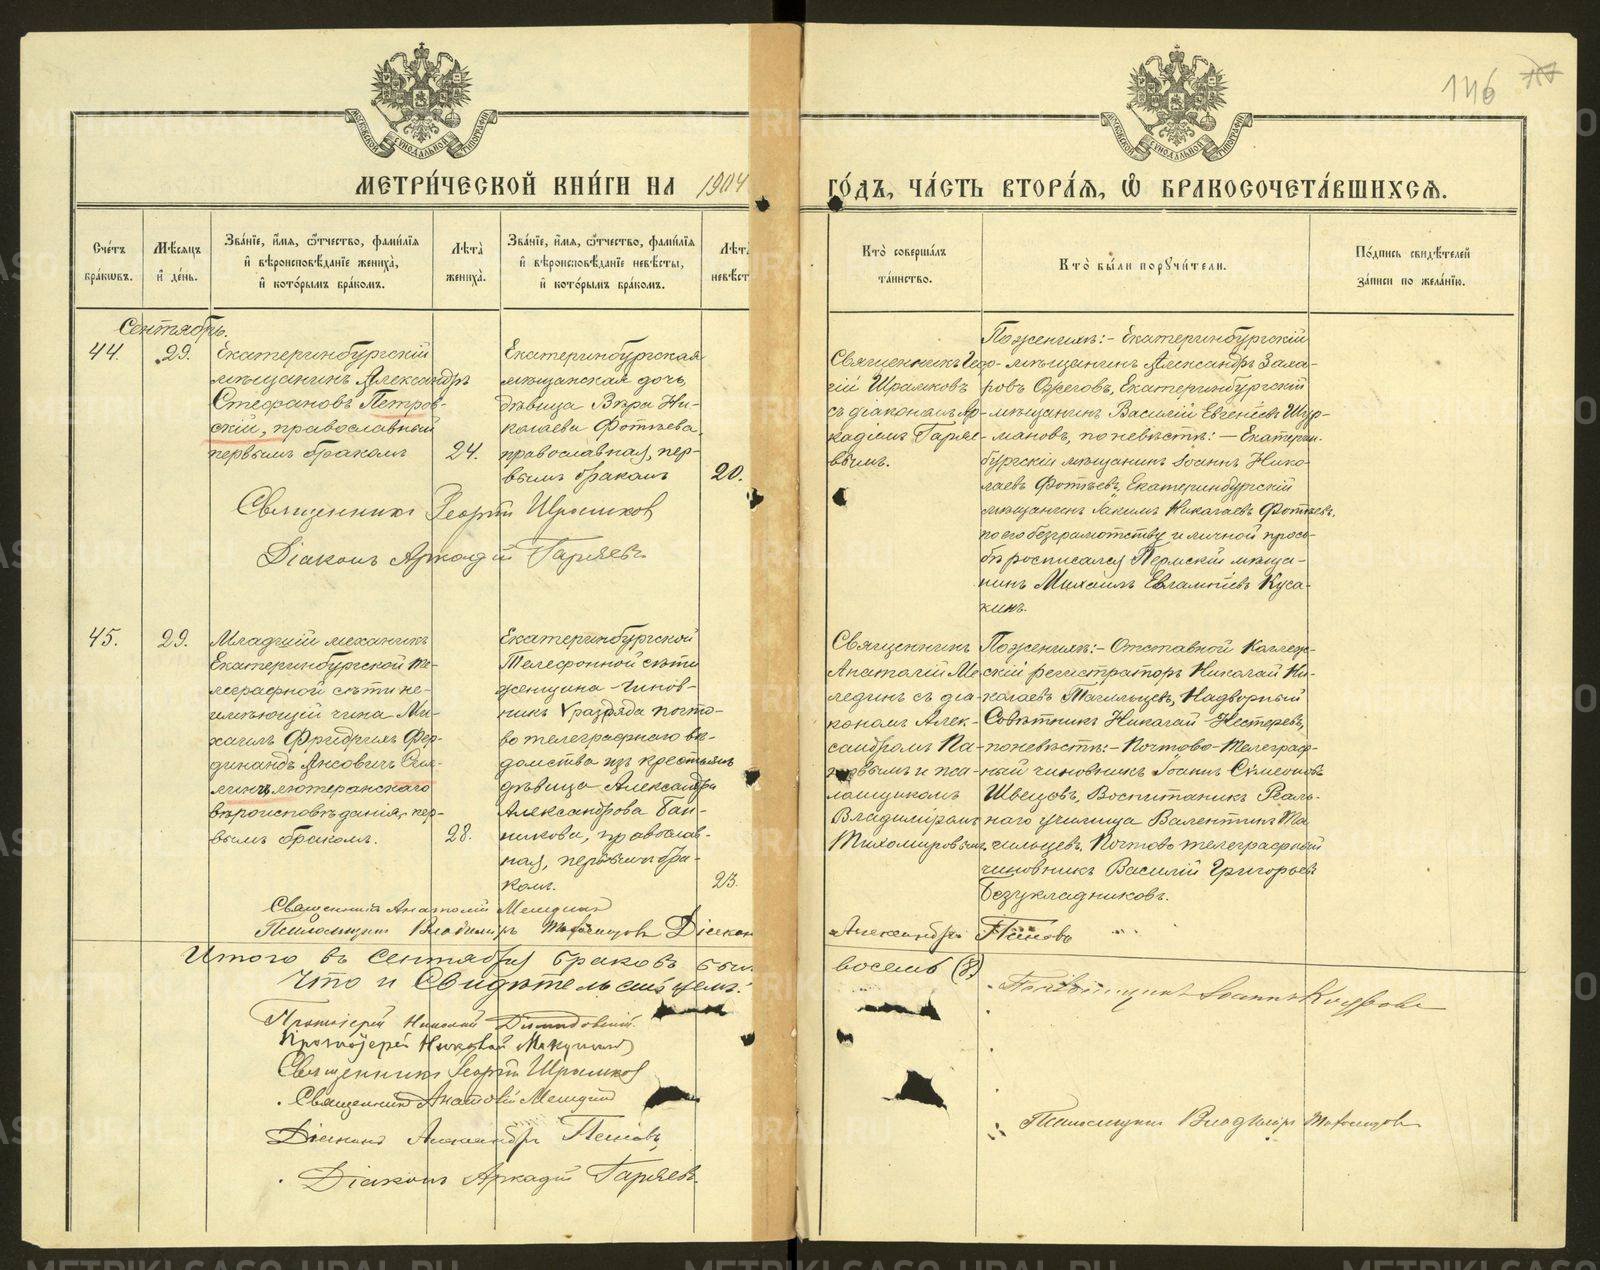 146
МЕТРИ́ЧЕСКОЙ КНИ́ГИ НА 1904 ГО́ДЪ, ЧА́СТЬ ВТОРА́Я, Ѽ БРАКОСОЧЕТА́ВШИХСѦ.
Сче́тъ бра́кѡвъ.
Мѣ́сяцъ и҆ де́нь.
Зва́нїе, и҆́мя, ѻ҆́тчество, фами́лїя и҆ вѣроисповѣ́данїе жениха̀, и҆ кото́рымъ бра́комъ.
Лѣта̀ жениха̀.
Зва́нїе, и҆́мя, ѻ҆́тчество, фами́лїя и҆ вѣроисповѣ́данїе невѣ́сты, и҆ кото́рымъ бра́комъ.
Лѣта̀ невѣ́ст
Кто̀ соверша́лъ та́инство.
Кто̀ бы́ли порꙋчи́тели.
По́дпись свидѣ́телей за́писи по жела́нїю.
Сентябрь.
44.
29.
Екатеринбургскій
мѣщанинъ Александръ
Стефановъ Петров-
скій, православный
первымъ бракомъ
24.
Екатеринбургская
мѣщанская дочь,
дѣвица Вѣра Ни-
колаева Фотѣева,
православная, пер-
вымъ бракомъ
20.
Священникъ Геор-
гій Шрамковъ
съ діакономъ Ар-
кадіемъ Гаряе-
вымъ.
По женихѣ:- Екатеринбургскій
мѣщанинъ Александръ Заха-
ровъ Ожеговъ, Екатеринбургскій
мѣщанинъ Василій Евгеніевъ Шур-
мановъ, по невѣстѣ: - Екатерин-
бургскій мѣщанинъ Іоаннъ Нико-
лаевъ Фотѣевъ, Екатеринбургскій
мѣщанинъ Іакимъ Николаевъ Фотѣевъ,
по его безграмотству и личной прось-
бѣ росписался Пермскій мѣща-
нинъ Михаилъ Евлампіевъ Куса-
кинъ.
Священникъ Георгій Шрамков
Діаконъ Аркадій Гаряевъ
45.
29.
Младшій механикъ
Екатеринбургской те-
леграфной сѣти не-
имѣющій чина Ми-
хаилъ Фридрихъ Фер-
динандъ Ансовичъ
лютеранскаго
вѣроисповѣданія, пер-
вымъ бракомъ.
28.
Екатеринбургской
Телефонной сѣти
женщина-чинов-
никъ V разряда почто-
во телеграфнаго вѣ-
домства изъ крестьянъ
дѣвица Александра
Александрова
православ-
ная, первымъ бра-
комъ.
23.
Священникъ
Анатолій Ме-
лединъ съ діа-
кономъ Алек-
сандромъ По-
повымъ и пса-
ломщикомъ
Владимиромъ
Тихомировымъ
По женихѣ:- Отставной Коллеж-
скій регистраторъ Николай Ни-
колаевъ Тагильцевъ, Надворный
Совѣтникъ Николай Нестеровъ,
по невѣстѣ:- Почтово-телеграф-
ный чиновникъ Іоаннъ Сѵмеоновъ
Швецовъ, Воспитаникъ Реаль-
наго училища Валентинъ Та-
гильцевъ, Почтово телеграфный
чиновникъ Василій Григорьевъ
Безукладниковъ.
Священникъ Анатолій Мелединъ
Псаломщикъ Владиміръ Тихомировъ Діакон Александръ Поповъ
Итого въ сентябрѣ браковъ был восемь (8)
Что и Свидѣтельствуемъ:
Протоіерей Николай
Протоіерей Николай
Священникъ Георгій Шрамков
Священникъ Анатолій Мелединъ
Діаконъ Александръ Поповъ
Діаконъ Аркадій Гаряевъ.
Псаломщикъ Іоаннъ
Псаломщикъ Владиміръ Тихомировъ